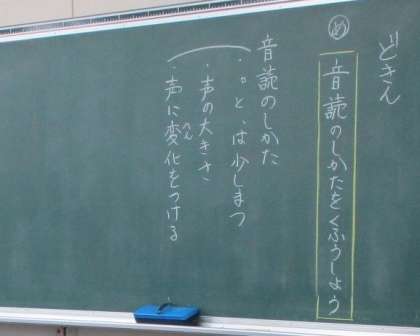 どきん
め
音読のしかたをくふうしよう
音読のしかた
・。と、は少しまつ
・声の大きさ
・声に変化をつける
へん